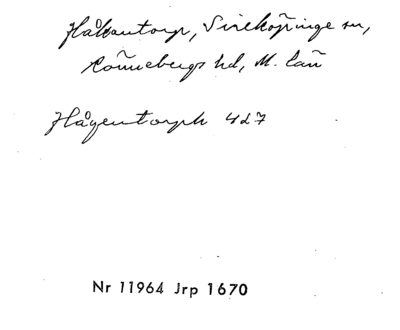 Håkantorp, Sireköpinge sn,
Rönnebergs hd, M. län
Hågentorph 4d7
Nr 11964 Jrp 1670